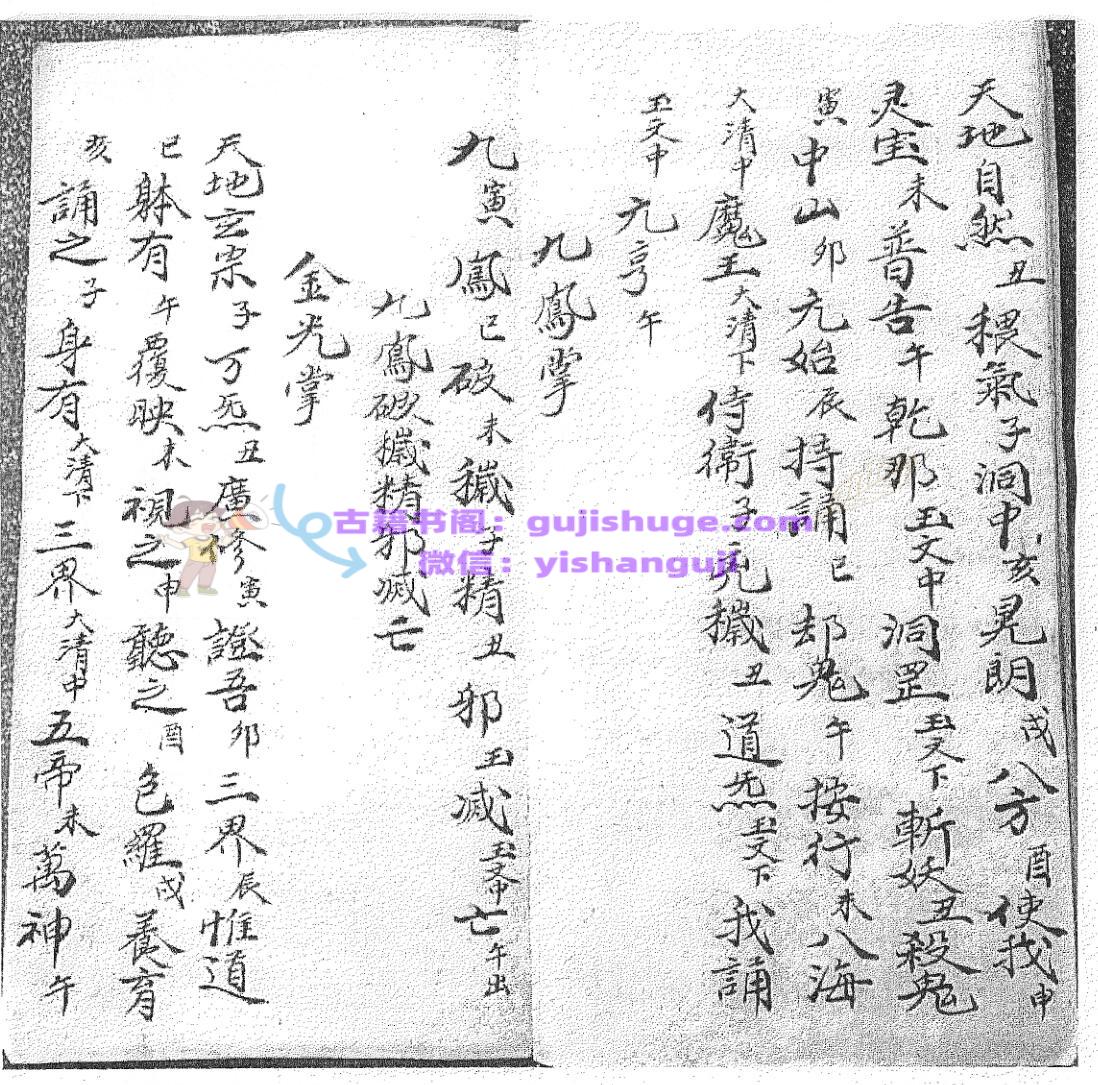 天地自然丑穢氣子洞中亥晃朗戌八方酉使我申
灵宝未普告午乾那玉文中洞罡玉文下斬妖丑殺鬼
寅中山卯元始辰持誦巳却鬼午按行未八海
大清中魔王大清下侍衞子兇穢丑道炁玉文下我誦
玉文中元亨午
九鳳掌
九寅鳳巳破未穢子精丑邪玉滅玉文中亡午出
九鳳破穢精邪滅亡
金光掌
天地玄宗子万炁丑廣修寅證吾卯三界辰惟道
巳躰有午覆映未視之申聽之酉包羅戌養育
亥誦之子身有大清下三界大清中五帝未萬神午
古籍书阁：gujishuge.com
微信：yishanguji